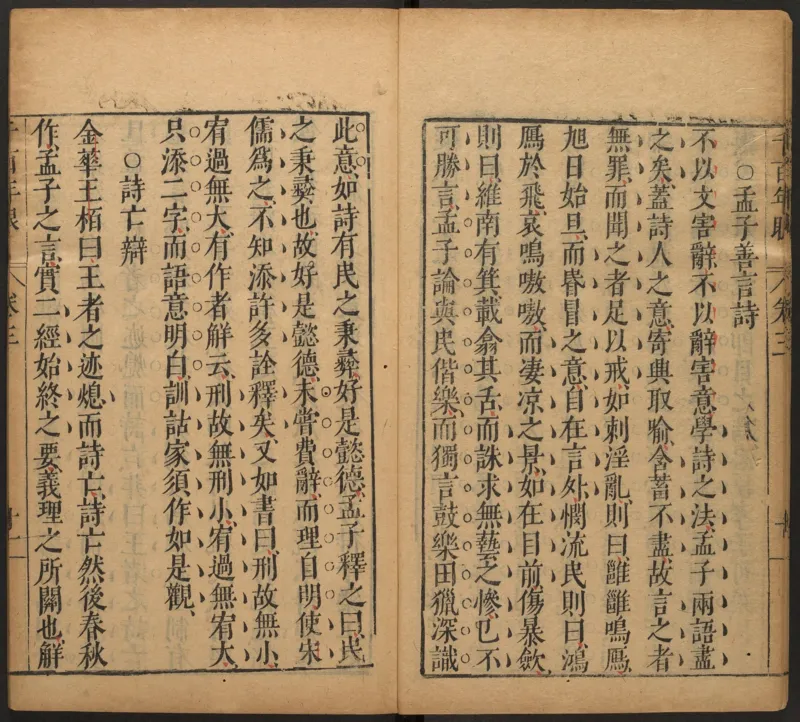 ○孟子善言詩
不以文害辭不以辭害意學詩之法孟子兩語盡
之矣蓋詩人之意寄興取喻含蓄不盡故言之者
無罪而聞之者足以戒如刺淫亂則曰雝雝鳴鴈
旭日始旦而昏冒之意自在言外憫流民則曰鴻
鴈於飛哀鳴嗷嗷而凄凉之景如在目前傷暴斂
則曰維南有箕載翕其舌而誅求無藝之慘已不
可勝言孟子論與民偕樂而獨言鼓樂田獵深識
此意如詩有民之秉彝好是懿德孟子釋之曰民
之秉彝也故好是懿德未嘗費辭而理自明使宋
儒爲之不知添許多詮釋矣又如書曰刑故無小
宥過無大有作者解云刑故無刑小宥過無宥大
只添二字而語意明白訓詁家須作如是觀
○詩亡辯
金華王柏曰王者之迹熄而詩亡詩亡然後春秋
作孟子之言實二經始終之要義理之所關也解